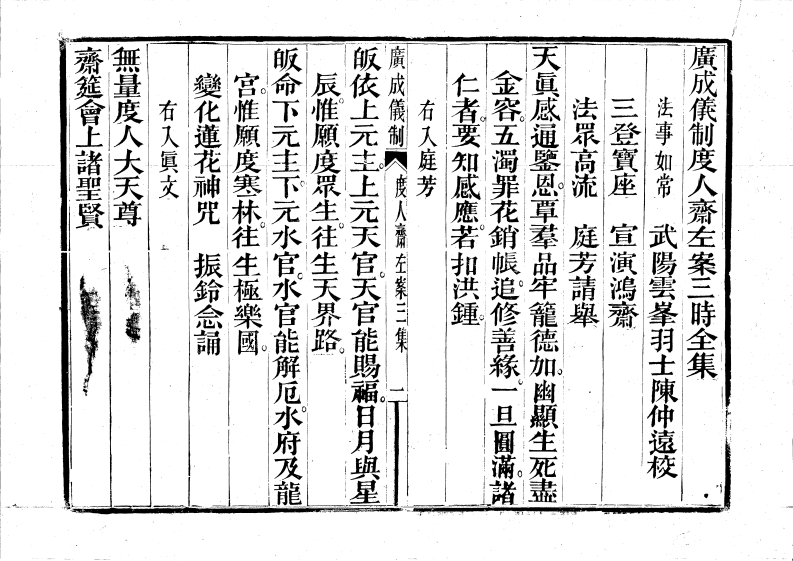 廣成儀制度人齋左案三時全集
法事如常　武陽雲峯羽士陳仲遠校
三登寶座　宣演鴻齋
法眾高流　庭芳請舉
天眞感通鑒恩。覃羣品牢籠德加。幽顯生死盡
金容。五濁罪花銷帳。追修善緣。一旦圓滿。諸
仁者。要知感應。若扣洪鍾。
右入庭芳
廣成儀制　度人齋左案三集　一
皈依上元主。上元天官。天官能賜福。日月與星
辰。惟願度眾生。往生天界路。
皈命下元主。下元水官。水官能解厄。水府及龍
宮。惟願度寒林。往生極樂國。
變化蓮花神咒　振鈴念誦
右入眞文
無量度人大天尊
齋筵會上諸聖賢